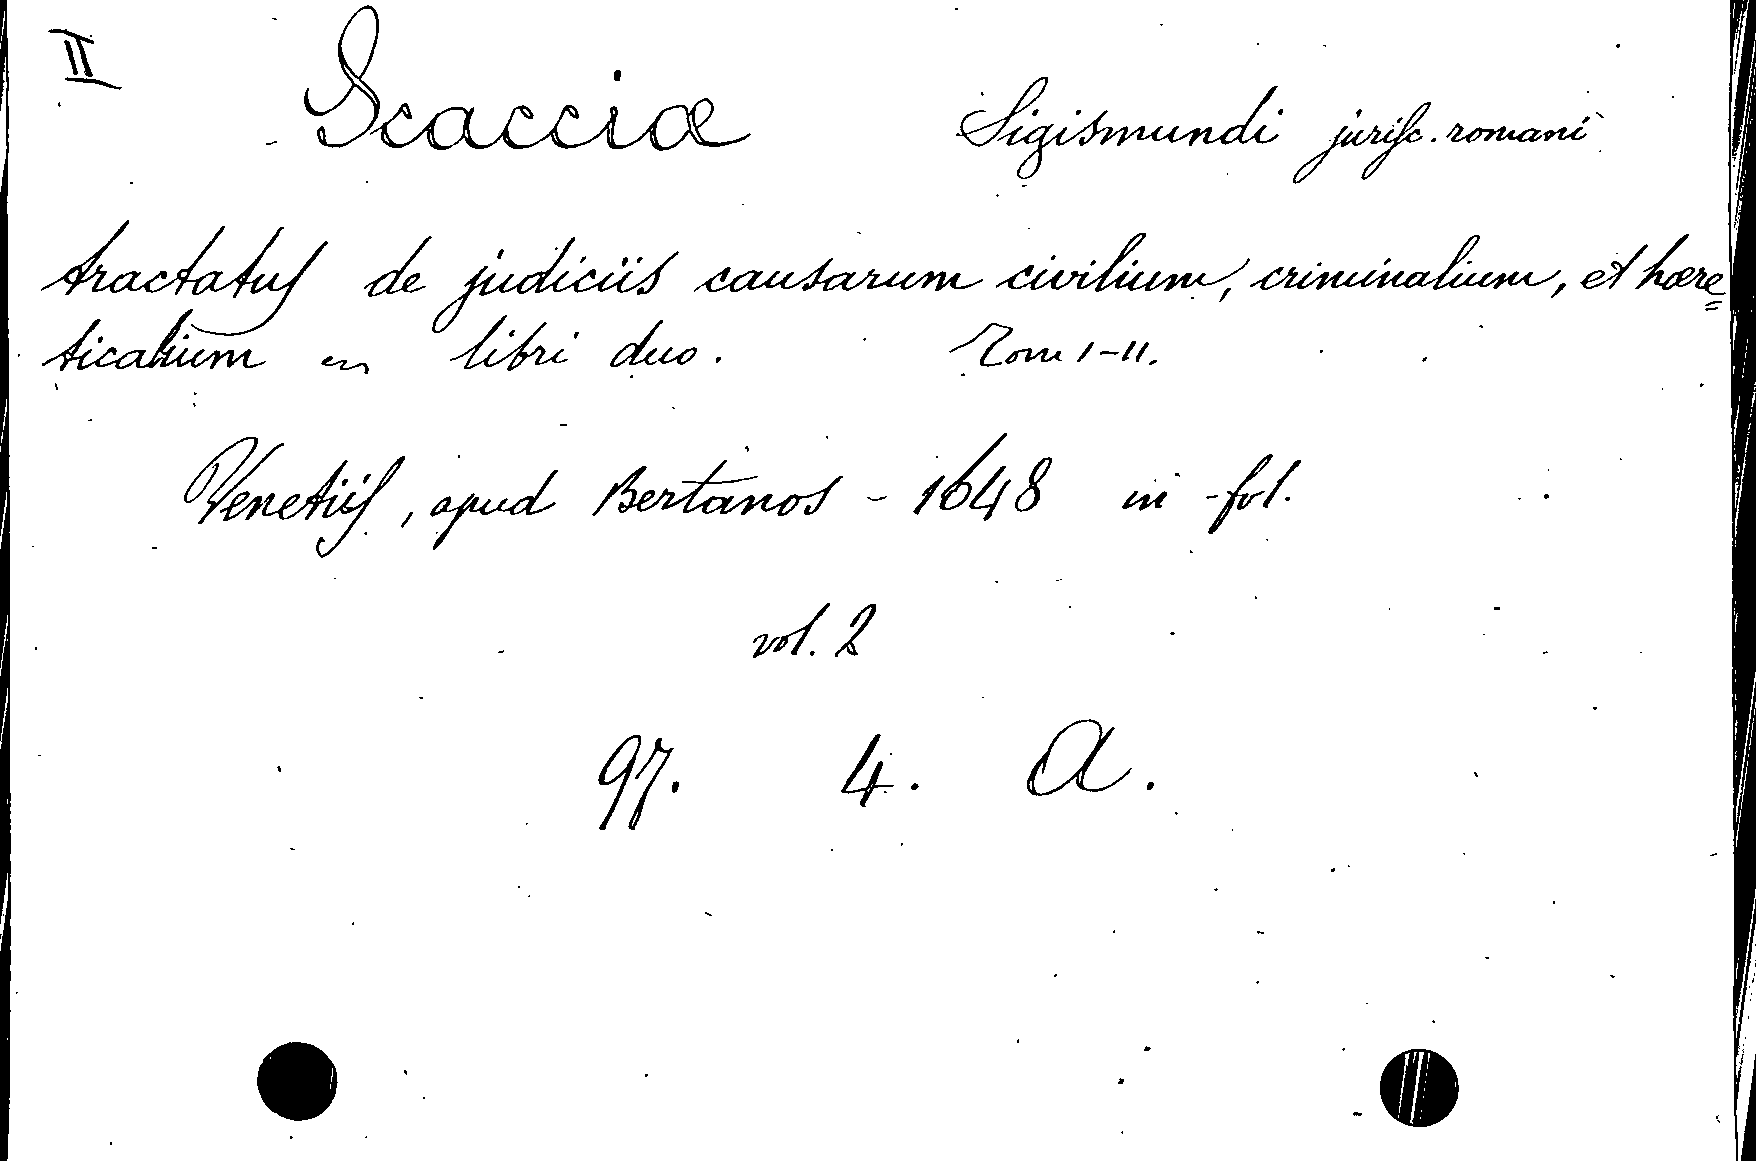 II
Scacciæ Sigismundi jurisc. romani
tractatus de judiciis causarum civilium, criminalium, et hære=
ticalium en libri duo. Tom I-II.
Venetiis, apud Bertanos - 1648 in-fol.
vol. 2
97. 4. A.